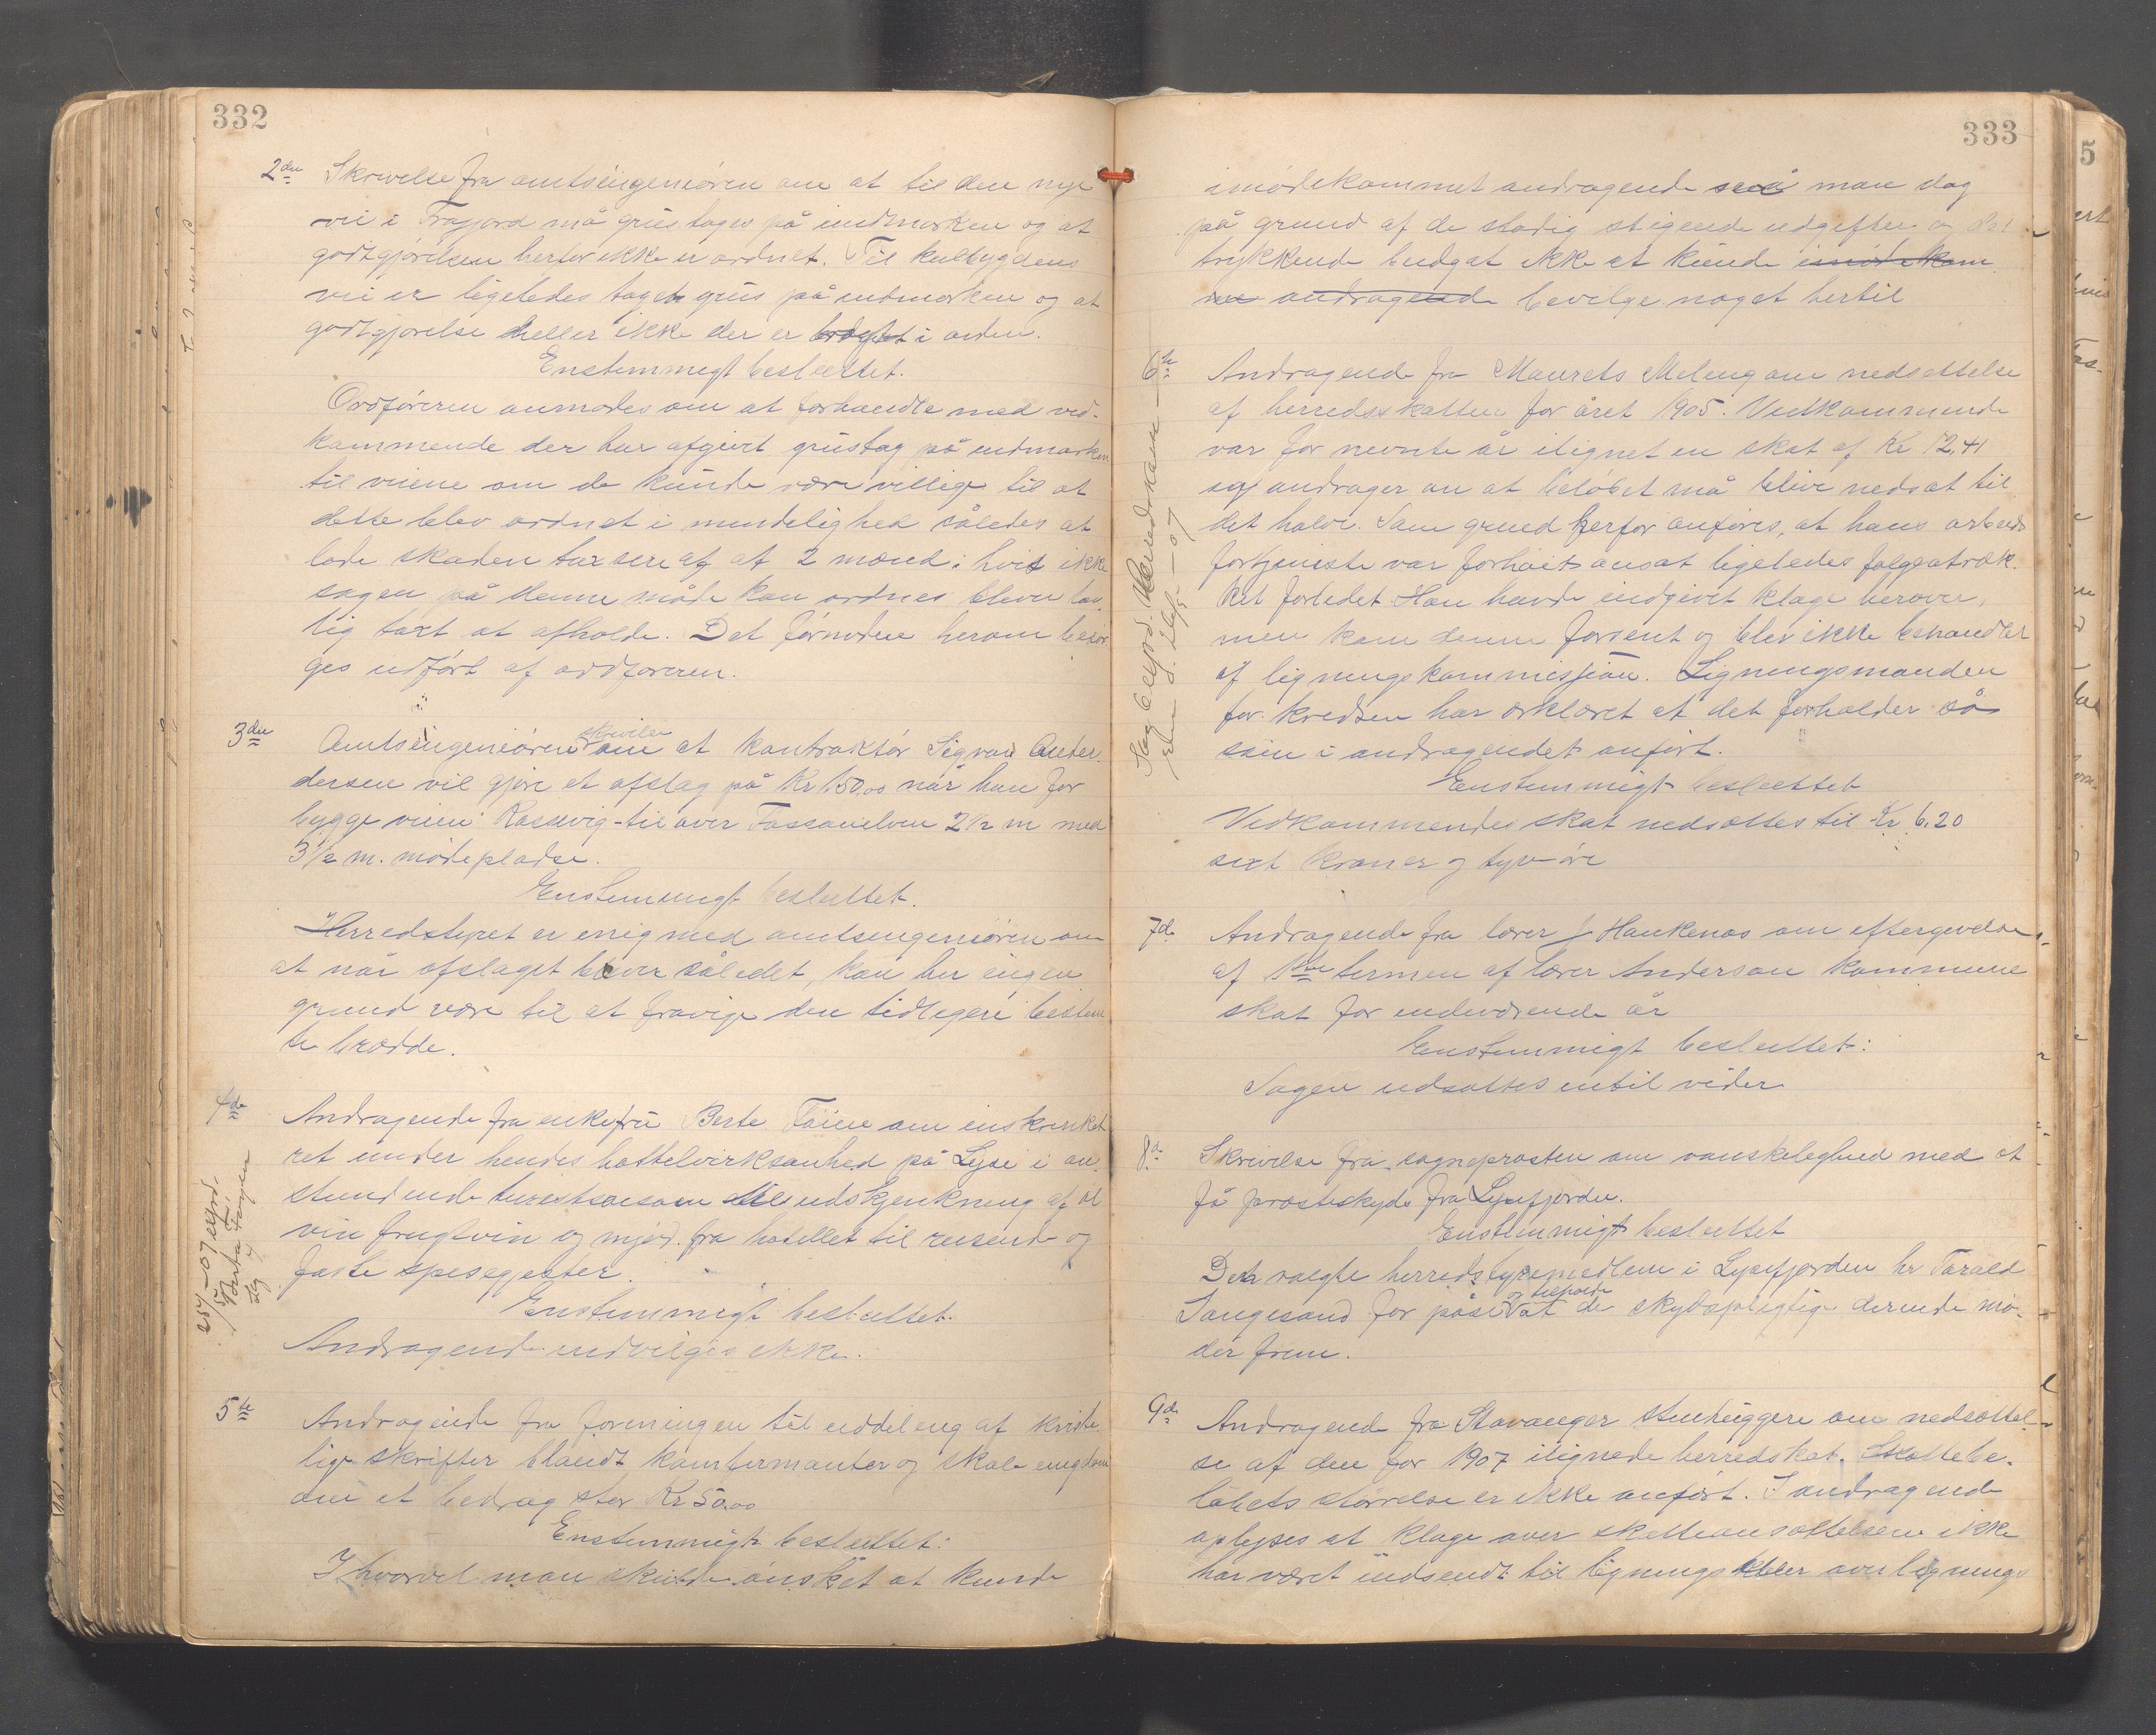 332
2den Skrivelse fra amtsingeniøren om at til den nye
vei i Frafjord må grus tages på indmarken og at
godtgjørelsen herfor ikke er ordnet. Til kulbygdens
vei er ligeledes taget grus på indmarken og at
godtgjørelse heller ikke der er bragt i orden.
Enstemmigt besluttet.
Ordføreren anmodes om at forhandle med ved-
kommende der har afgivet grustag på indmarken
til veiene om de kunde være villige til at
dette blev ordnet i mindelighed således at
lade skaden taxere af 2 mænd: hvis ikke
sagen på denne måde kan ordnes blever lov-
lig taxt at afholde. Det førnødne herom besør
ges udført af ordføreren.
3die Amtsingeniøren skriver om at kontraktør Sigvar Ander-
dersen vil gjøre et afslag på Kr 150,00 når han for
bygge veien Rossavig til over Fossanelven 2 1/2 m med
3 1/2 m. mødepladse.
Enstemmigt besluttet.
Herredstyret er enig med amtsingeniøren om
at når afslaget blever således, kan her ingen
grund være til at fravige den tidligere bestem
te bredde.
4de Andragende fra enkefru Berte Tøien om inskrenket
ret under hendes hottelvirksomhed på Lyse i an-
stundende turestsæson til udskjenkning af øl
vin frugtvin og mjød fra hotellet til reisende og
faste spisegjester.
Enstemmigt besluttet.
Andragende indvilges ikke.
25/5 - 07 expd.
Berta Tøien
5te Andragende fra foreningen til uddeling af kriste
lige skrifter blandt konfirmanter og skoleungdom
om et bedrag stor Kr 50.00
Enstemmigt besluttet:
Ihvorvel man skulde ønsket at kunde
333
imødekommet andragende så må man dog
på grund af de stadig stigende udgifter og det
trykkende budget ikke at kunde imødekom
me andragende bevilge noget hertil
6te Andragende fra Maurets Meling om nedsettelse
af herredsskatten for året 1905. Vedkommende
var for nevnte år ilignet en skat af Kr 12,41
og andrager om at beløbet må blive nedsat til
det halve. Som grund herfor anføres, at hans arbeids
fortjeneste var forhøit ansat ligeledes følgeatræk.
ket forledet. Han havde indgivet klage herover,
men kom denne forsent og blev ikke behandlet
af ligningskommissjon. Ligningsmanden
for kredsen har erklæret at det forholder så
som i andragendet anført.
Enstemmigt besluttet
Vedkommendes skat nedsættes til Kr 6.20
sext kroner og tyve øre
Sag 6 expd. Herredskasse-
7de Andragende fra lærer J Haukenæs om eftergivelse
af 1ste termen af lærer Anderson kommune
skat for indeværende år
Enstemmigt besluttet:
Sagen udsættes intil videre
8de Skrivelse fra sogneprosten om vanskelighed med at
få prosteskyds fra Lysefjorden.
Enstemmigt besluttet
Det valgte herredstyremedlem i Lysefjorden hr Torald
Sangesand for påse og tilholde at de skydspligtige derinde mø-
der frem.
9de Andragende fra Stavanger stenhuggere om nedsættel-
se af den for 1907 ilignede herredskat. Skattebe-
løbets størrelse er ikke anført. I andragende
oplyses at klage over skatteansættelsen ikke
har været indsendt til lignings eller overlignings
5